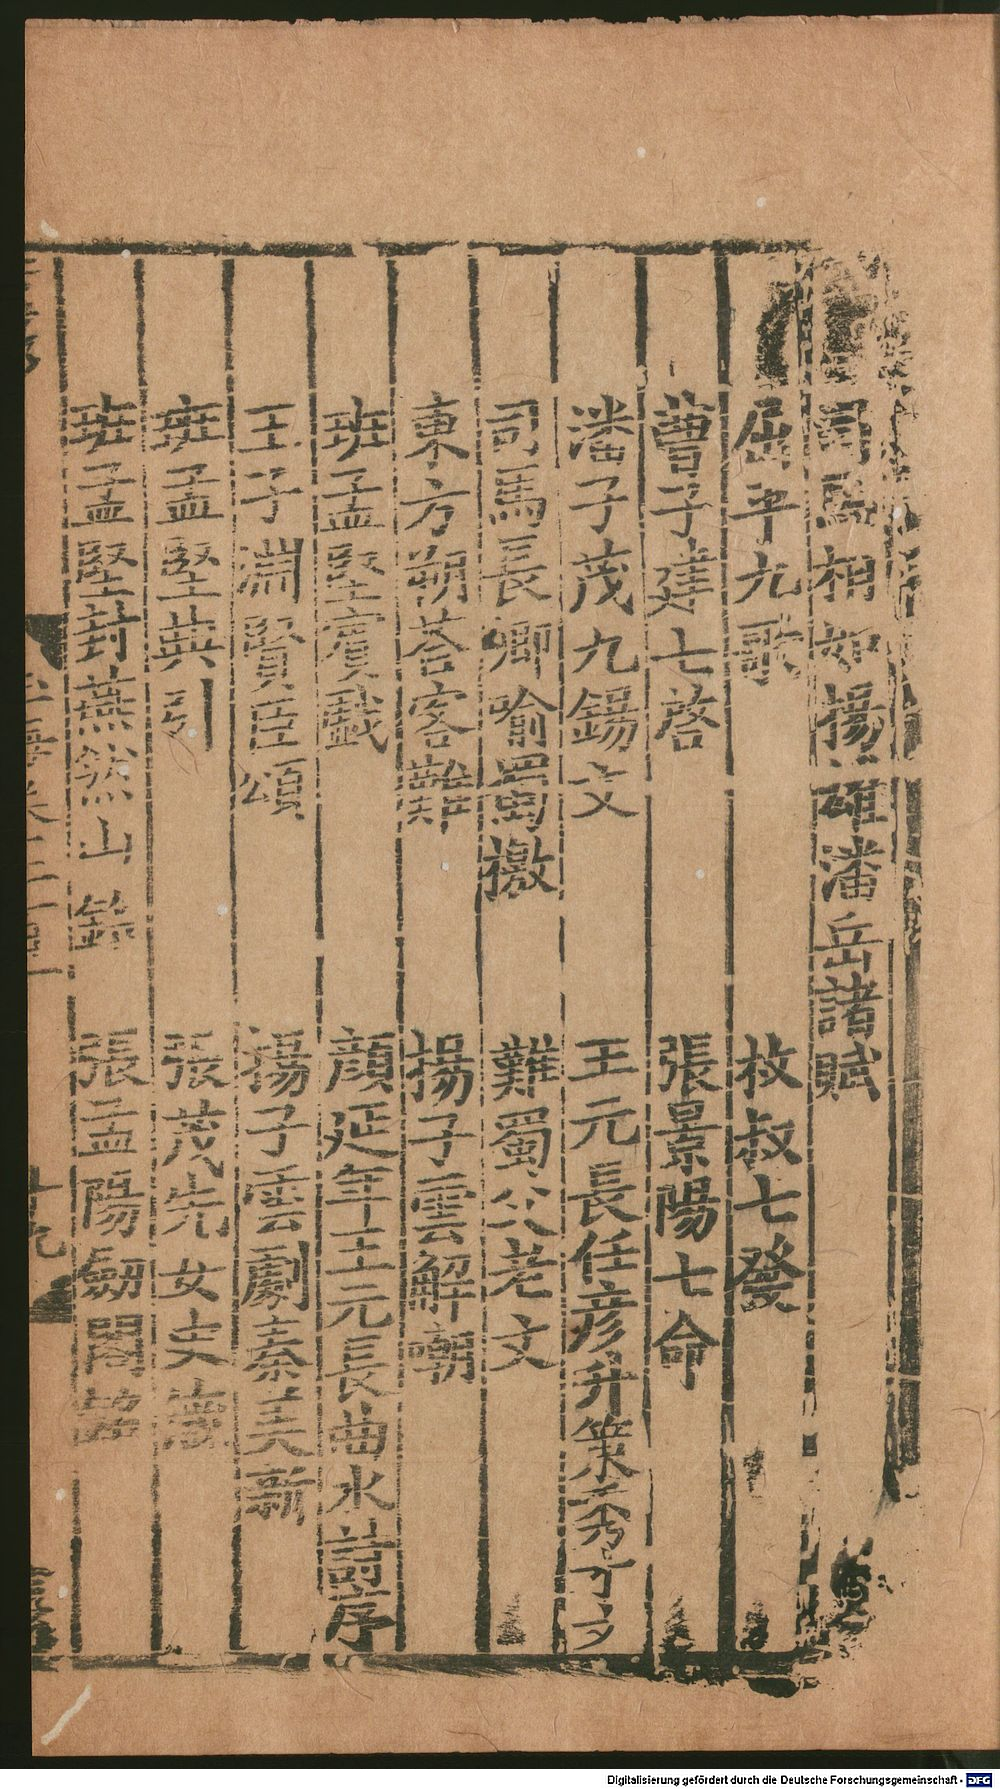 司馬相如揚雄潘岳諸賦
屈平九歌 枚叔七發
曹子建七啓 張景陽七命
潘子茂九錫文 王元長任彥升策秀才文
司馬長卿喻蜀檄 難蜀父老文
東方朔荅客難 揚子雲解嘲
班孟堅賓戲 顏延年王元長曲水詩序
王子淵賢臣頌 揚子雲劇秦美新
班孟堅典引 張茂先女史箴
班孟堅封燕然山銘 張孟陽劒閣銘
Digitalisierung gefördert durch die Deutsche Forschungsgemeinschaft - DFG